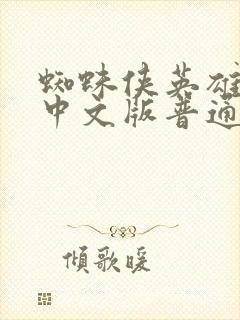 蜘蛛侠英雄
中文版普通
倾歌暖